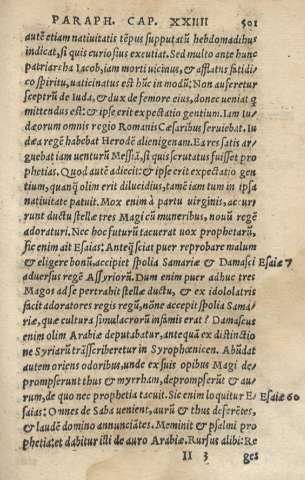 PARAPH. CAP. XXIIII 501
autē etiam natiuitatis tēpus supputatū hebdomadibus
indicat, si quis curiosius excutiat. Sed multo ante hunc
patriarcha Iacob, iam morti uicinus, & afflatus fatidi-
co spiritu, uaticinatus est hūc in modū: Non auferetur
sceptrū de Iuda, & dux de femore eius, donec ueniat q
mittendus est: & ipse erit expectatio gentium. Iam Iu
dæorum omnis regio Romanis Cæsaribus seruiebat. Iu
dæa regē habebat Herodē alienigenam. Ea res satis ar-
guebat iam uenturū Messiā, si quis scrutatus fuisset pro
phetias. Quod autē adiecit: & ipse erit expectatio gen
tium, quanq̄ olim erit dilucidius, tamē iam tum in ipsa
natiuitate patuit. Mox enim à partu uirginis, accur
runt ductu stellæ tres Magi cū muneribus, nouū regē
adoraturi. Nec hoc futurū tacuerat uox prophetarū,
sic enim ait Esaias: Anteq̄ sciat puer reprobare malum
& eligere bonū, accipiet spolia Samariæ & Damasci Esaiæ 7
aduersus regē Assyriorū. Dum enim puer adhuc tres
Magos ad se pertrahit stellæ ductu, & ex idololatris
facit adoratores regis regū, nōne accepit spolia Sama-
riæ, quæ cultura simulacrorū infamis erat? Damascus
enim olim Arabiæ deputabatur, antequā ex distinctio
ne Syriarū trāsscriberetur in Syrophœnicen. Abūdat
autem oriens odoribus, unde ex suis opibus Magi de-
prompserunt thus & myrrham, deprompserūt & au-
rum, de quo nec prophetia tacuit. Sic enim loquitur E- Esaiæ 60
saias: Omnes de Saba uenient, aurū & thus deferētes,
& laudē domino annunciātes. Meminit & psalmi pro
phetia: et dabitur illi de auro Arabiæ. Rursus alibi: Re
II 3 ges